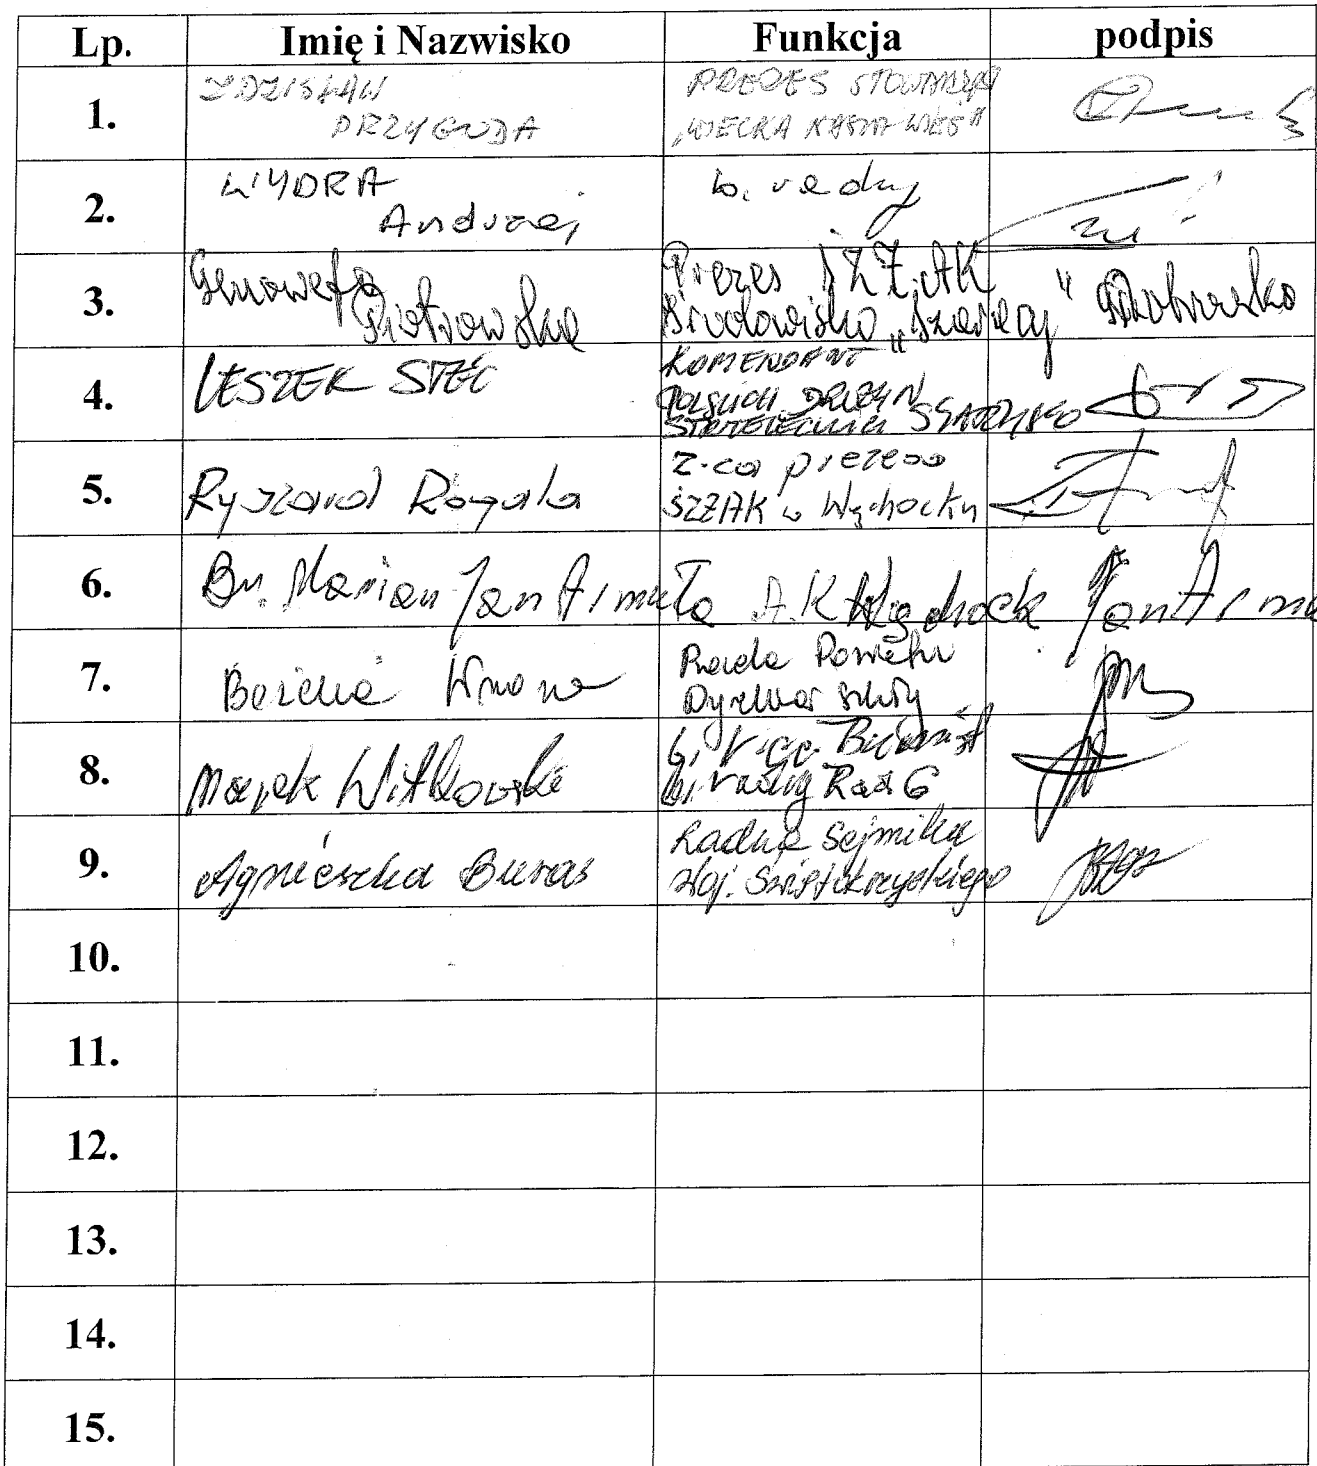 Lp. Imię i Nazwisko Funkcja podpis
1. ZDZISŁAW PREZES STOWARZYSZ
PRZYGODA „WIELKA NASZA WIEŚ"
2. WYDRA b. radny
Andrzej
3. Genowefa Prezes ŚZŻ.AK
Piotrowska Środowisko „Szarzacy"
4. LESZEK STEĆ KOMENDANT
POLSKICH DRUŻYN
STRZELECKICH STARZYSKO
5. Ryszard Rogala Z-ca prezesa
ŚZŻAK w Wąchocku
6. Br. Marian Jan Armuła A.K Wąchock Jan Armu
7. Bożena Wrona Rada Powiatu
Dyrektor szkoły
8. Marek Witkowski b. Vice Burmist
b. radny Rad G
9. Agnieszka Buras Radna Sejmiku
Woj. Świętokrzyskiego
10.
11.
12.
13.
14.
15.